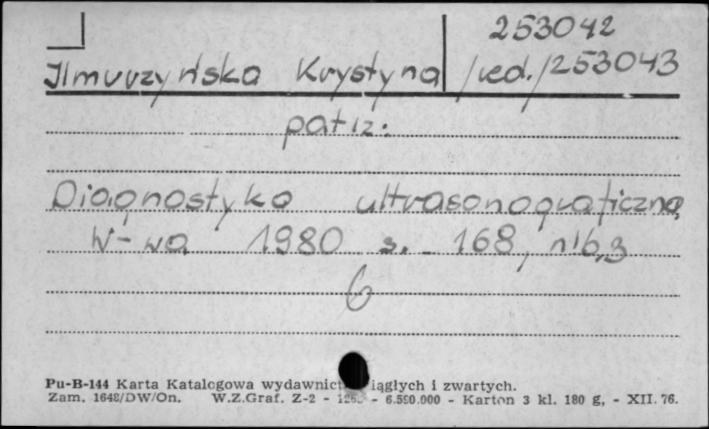 253042
Ilmurzyńska Krystyna /red./ 253043
patrz:
Diagnostyka ultrasonograficzna,
W-wa 1980 s. 168, nlb,3
6
Pu-B-144 Karta Katalogowa wydawnict iągłych i zwartych.
Zam. 1648/DW/On. W.Z.Graf. Z-2 - - 6.590.000 - Karton 3 kl. 180 g, - XII. 76.